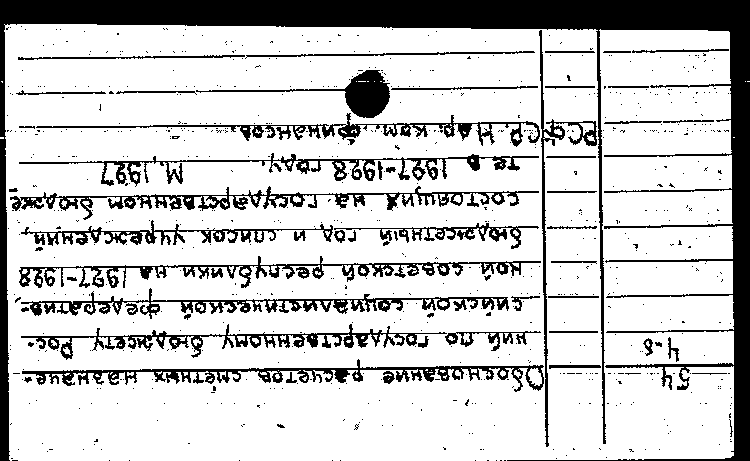 54 Обоснование расчетов сметных назначе-
4-8 ний по государственному бюджету Рос-
сийской социалистической федератив-
ной советской республики на 1927-1928
бюджетный год и список учреждений,
состоящих на государственном бюдже
те в 1927-1928 году. М., 1927
РСФСР. Нар. ком. финансов.